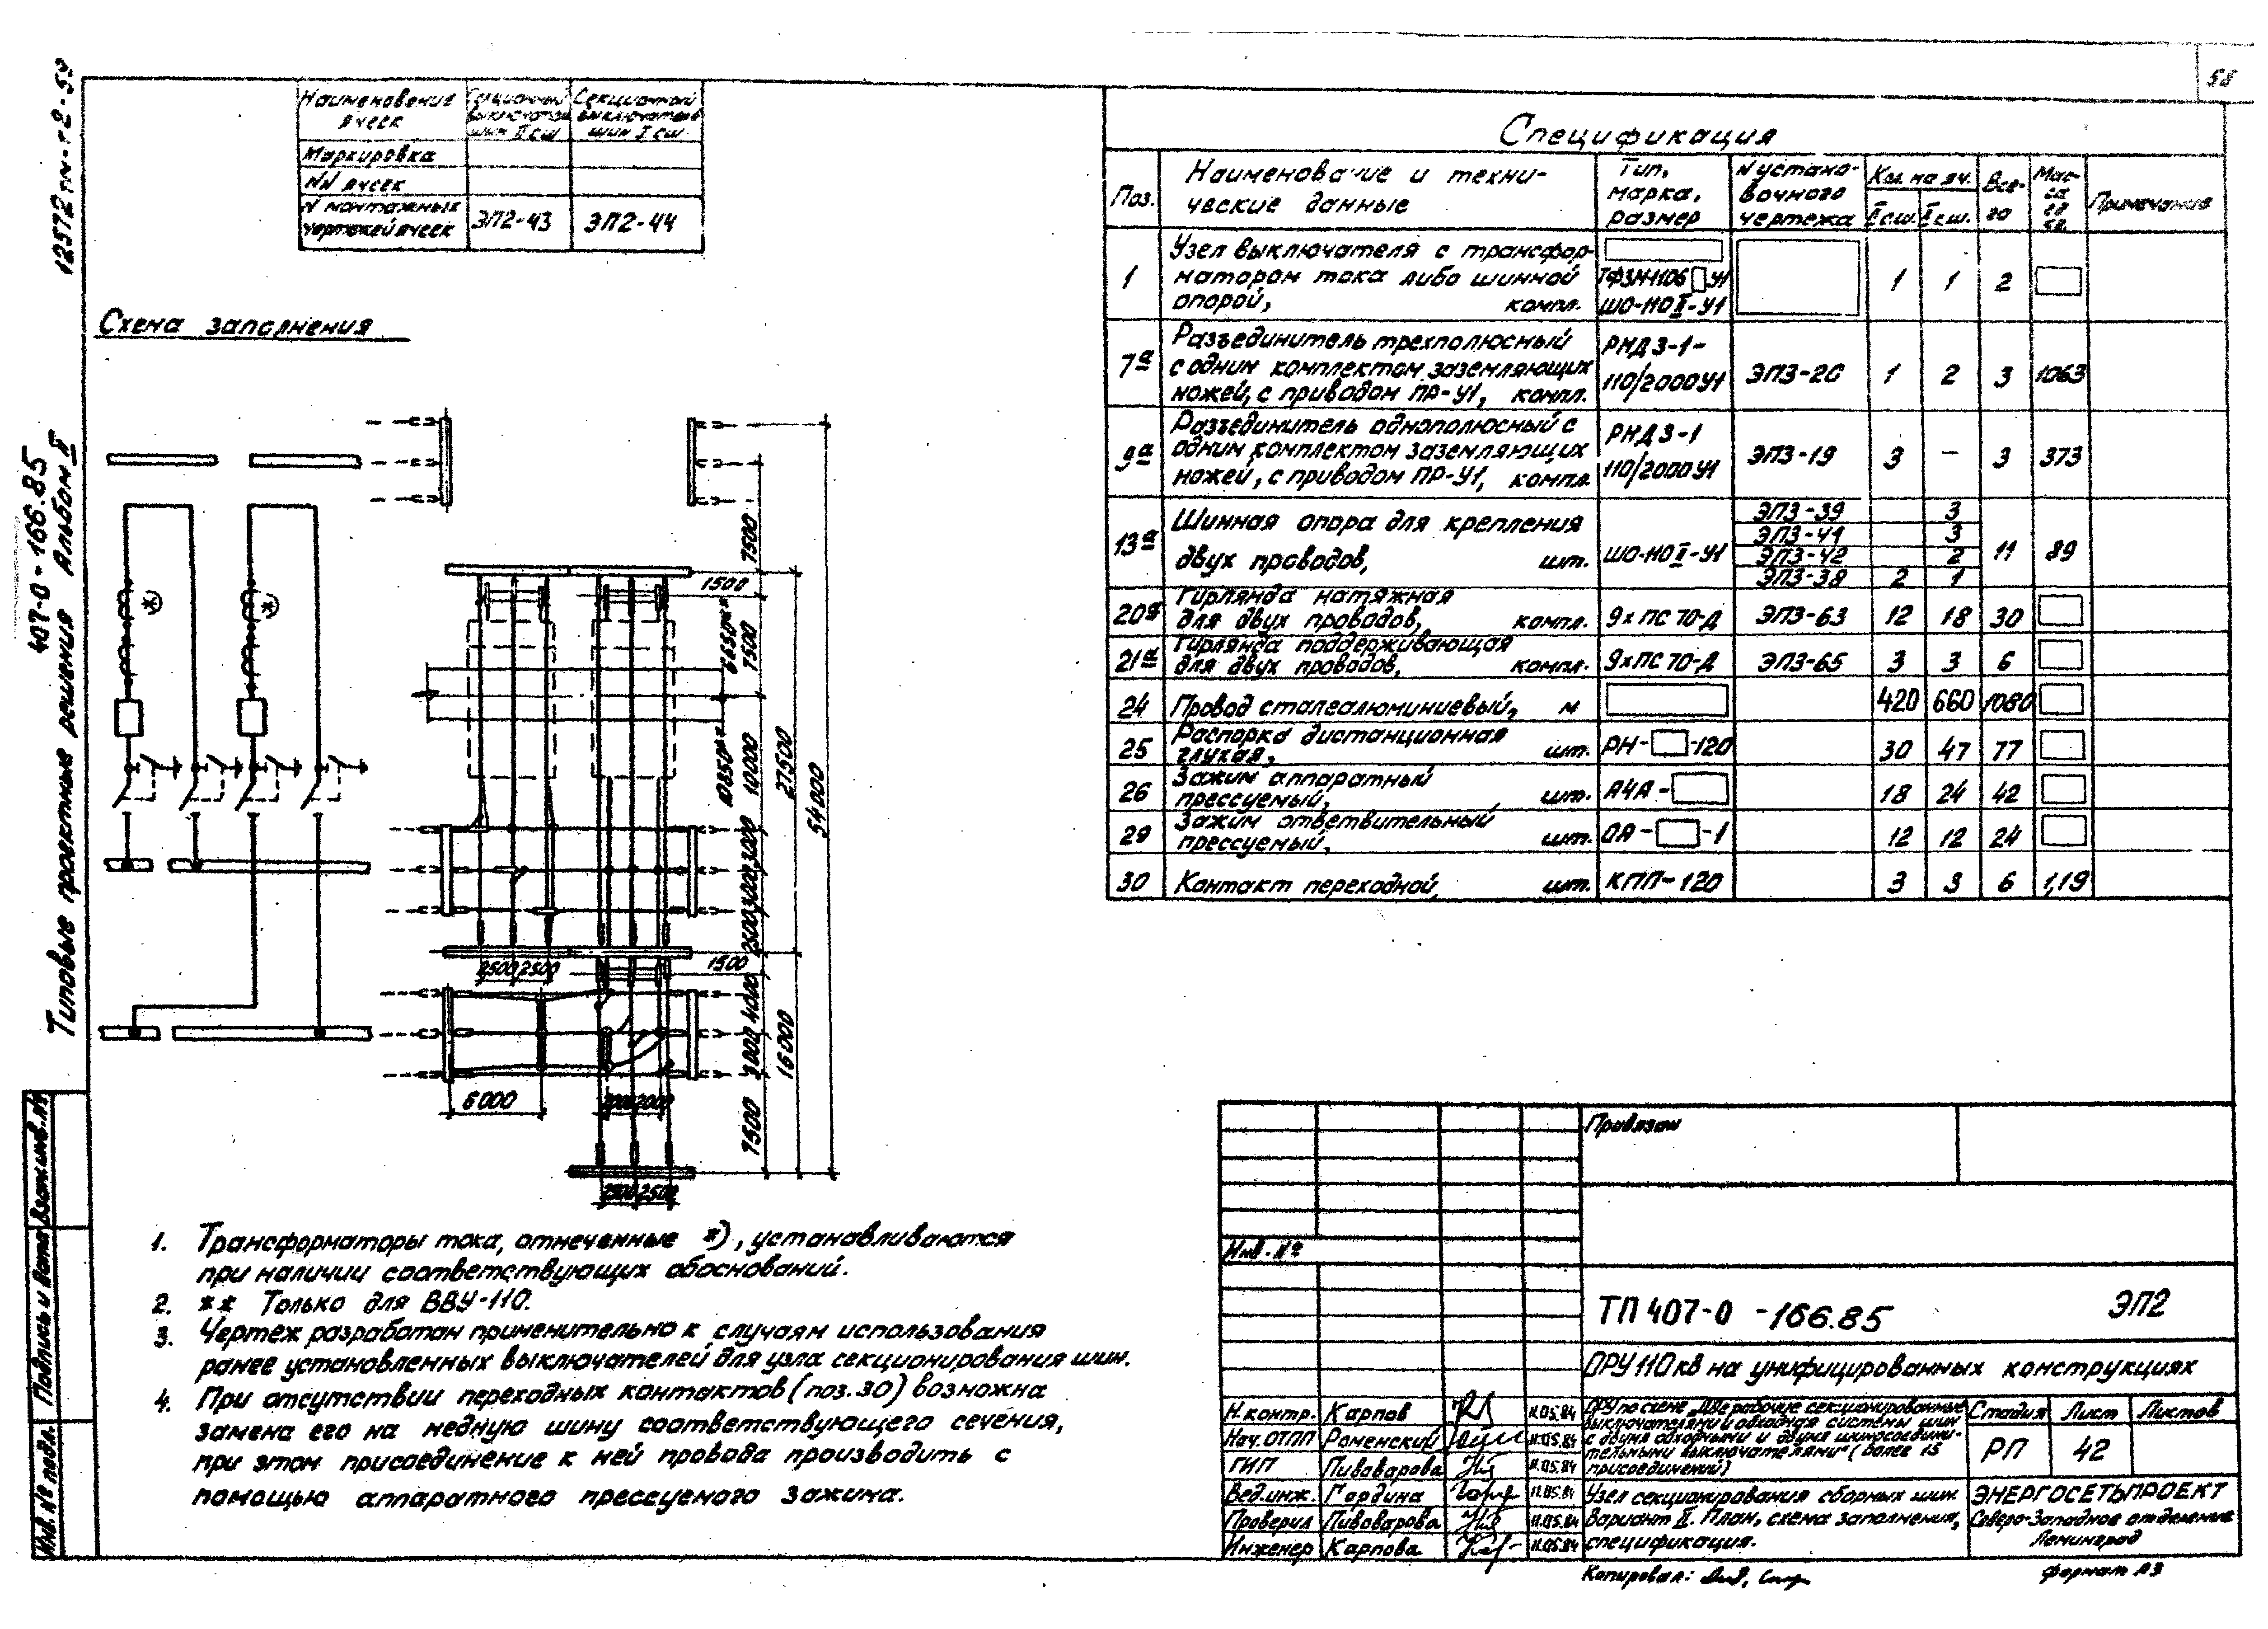 58
12572тм-т2-59
407-0-166.85
Типовые проектные решения Альбом II
Наименование ячеек
Секционный выключатель шин II сш
Секционный выключатель шин I сш.
Маркировка
NN ячеек
N монтажных чертежей ячеек
ЭП2-43
ЭП2-44
Схема заполнения
*
*
7500
1500
6650**
7500
10850**
10000
27500
54000
3000
3000
2500
2500 2500
1500
4000
3000
16000
6000
2000 2000
7500
2500 2500
Спецификация
Поз.
Наименование и технические данные
Тип, марка, размер
N установочного чертежа
Кол. на яч.
II сш.
I сш.
Всего
Масса ед. кг.
Примечание
1
Узел выключателя с трансфор-
матором тока либо шинной
опорой, компл.
ТФЗМ-110Б У1
ШО-110 II-У1
1 1 2
7а
Разъединитель трехполюсный
с одним комплектом заземляющих
ножей, с приводом ПР-У1, компл.
РНДЗ-1-
110/2000У1
ЭП3-20 1 2 3 1063
9а
Разъединитель однополюсный с
одним комплектом заземляющих
ножей, с приводом ПР-У1, компл.
РНДЗ-1
110/2000У1
ЭП3-19 3 – 3 373
13а
Шинная опора для крепления
двух проводов, шт.
ШО-110 II-У1
ЭП3-39 3
ЭП3-41 3
ЭП3-42 2
ЭП3-38 2 1
11 89
20а
Гирлянда натяжная
для двух проводов, компл. 9хПС 70-Д ЭП3-63 12 18 30
21а
Гирлянда поддерживающая
для двух проводов, компл. 9хПС 70-Д ЭП3-65 3 3 6
24 Провод сталеалюминиевый, м 420 660 1080
25
Распорка дистанционная
глухая, шт. РН- -120 30 47 77
26
Зажим аппаратный
прессуемый, шт. А4А- 18 24 42
29
Зажим ответвительный
прессуемый, шт. ОА- -1 12 12 24
30 Контакт переходной, шт. КПП-120 3 3 6 1,19
1. Трансформаторы тока, отмеченные *), устанавливаются
при наличии соответствующих обоснований.
2. ** Только для ВВУ-110.
3. Чертеж разработан применительно к случаям использования
ранее установленных выключателей для узла секционирования шин.
4. При отсутствии переходных контактов (поз. 30) возможна
замена его на медную шину соответствующего сечения,
при этом присоединение к ней провода производить с
помощью аппаратного прессуемого зажима.
Взам.инв.№
Подпись и дата
Инв. № подл.
Привязан
Инв. №
ТП 407-0 -166.85 ЭП2
ОРУ 110 кВ на унифицированных конструкциях
Н.контр. Карпов 11.05.84
Нач.ОТПП Роменский 11.05.84
ГИП Пивоварова 11.05.84
Вед.инж. Гордина 11.05.84
Проверил Пивоварова 11.05.84
Инженер Карпова 11.05.84
ОРУ по схеме „Две рабочие секционированные
выключателями и обходная системы шин
с двумя обходными и двумя шиносоедини-
тельными выключателями" (более 15
присоединений)
Стадия Лист Листов
РП 42
Узел секционирования сборных шин.
Вариант II. План, схема заполнения,
спецификация.
ЭНЕРГОСЕТЬПРОЕКТ
Северо-Западное отделение
Ленинград
Копировал:
Формат А3